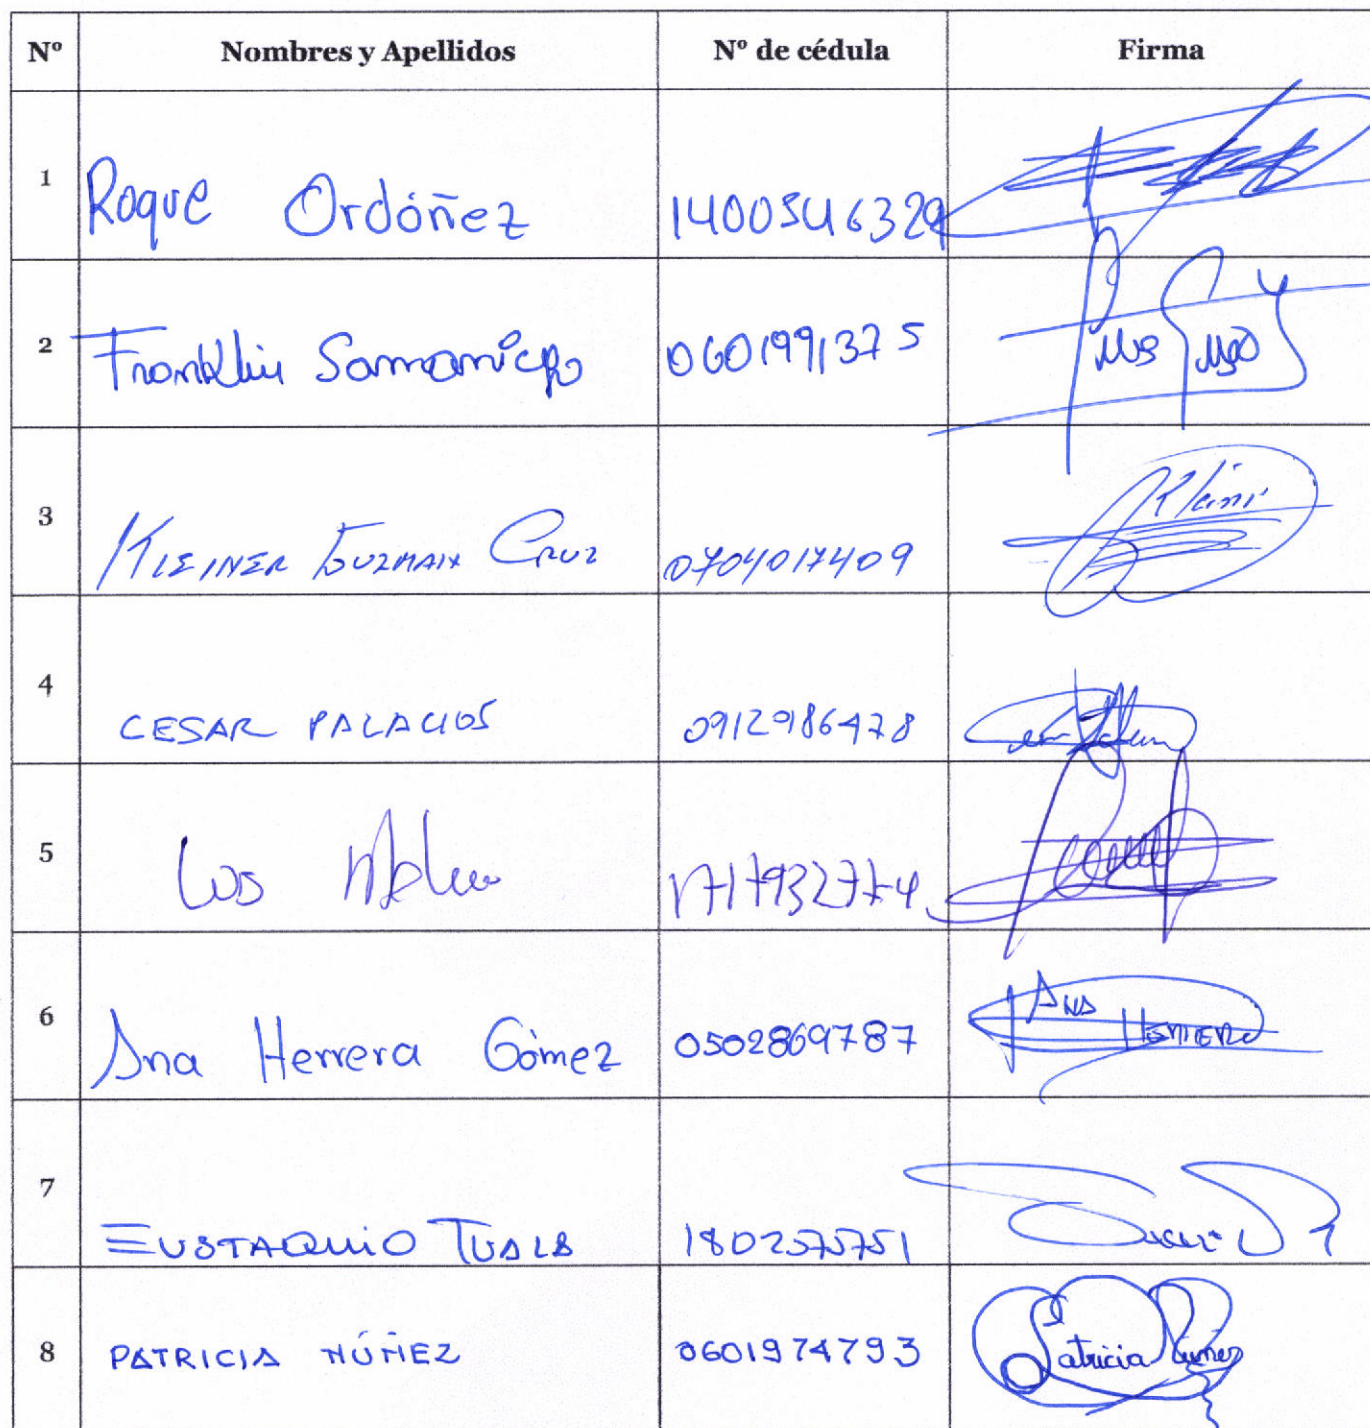 Nº Nombres y Apellidos Nº de cédula Firma
1 Roque Ordóñez 1400546329
2 Franklin Samaniego 0601991375
3 KLEINER GUZMAN CRUZ 0704017409
4 CESAR PALACIOS 0912986478
5 1717932774
6 Ana Herrera Gómez 0502869787 ANA HERRERA
7 EUSTAQUIO TUALA 1802575751
8 PATRICIA NÚÑEZ 0601974793 Patricia Núñez